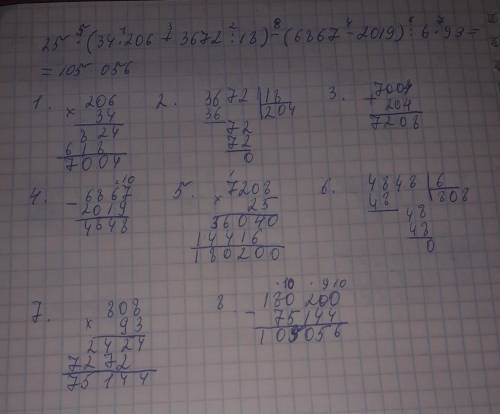 25 · (34 · 206 + 3672 : 18) - (6867 - 2019) : 6 · 93 =
= 105 056
1. 206
× 34
824
618
7004
2. 3672 | 18
36 204
72
72
0
3. 7004
+ 204
7208
4. - 6867
2019
4848
5. 7208
× 25
36040
14416
180200
6. 4848 | 6
48 808
48
48
0
7. 808
× 93
2424
7272
75144
8 180200
- 75144
105056